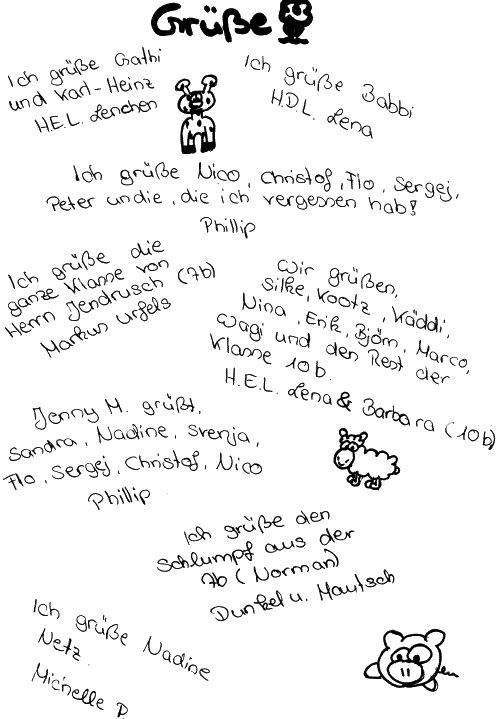 Grüße
Ich grüße Gathi
und Karl-Heinz
H.E.L. Lenchen
Ich grüße Babbi
H.D.L. Lena
Ich grüße Nico, Christof, Flo, Sergej,
Peter und die, die ich vergessen hab!
Phillip
Ich grüße die
ganze Klasse von
Herrn Jendrusch (7b)
Markus Urfels
Wir grüßen,
Silke, Kootz, Käddi,
Nina, Erik, Björn, Marco,
Wagi und den Rest der
Klasse 10b.
H.E.L. Lena & Barbara (10b)
Jenny M. grüßt,
Sandra, Nadine, Svenja,
Flo, Sergej, Christof, Nico
Phillip
Ich grüße den
Schlumpf aus der
7b (Norman)
Dunkel u. Mautsch
Ich grüße Nadine
Netz.
Michelle P.